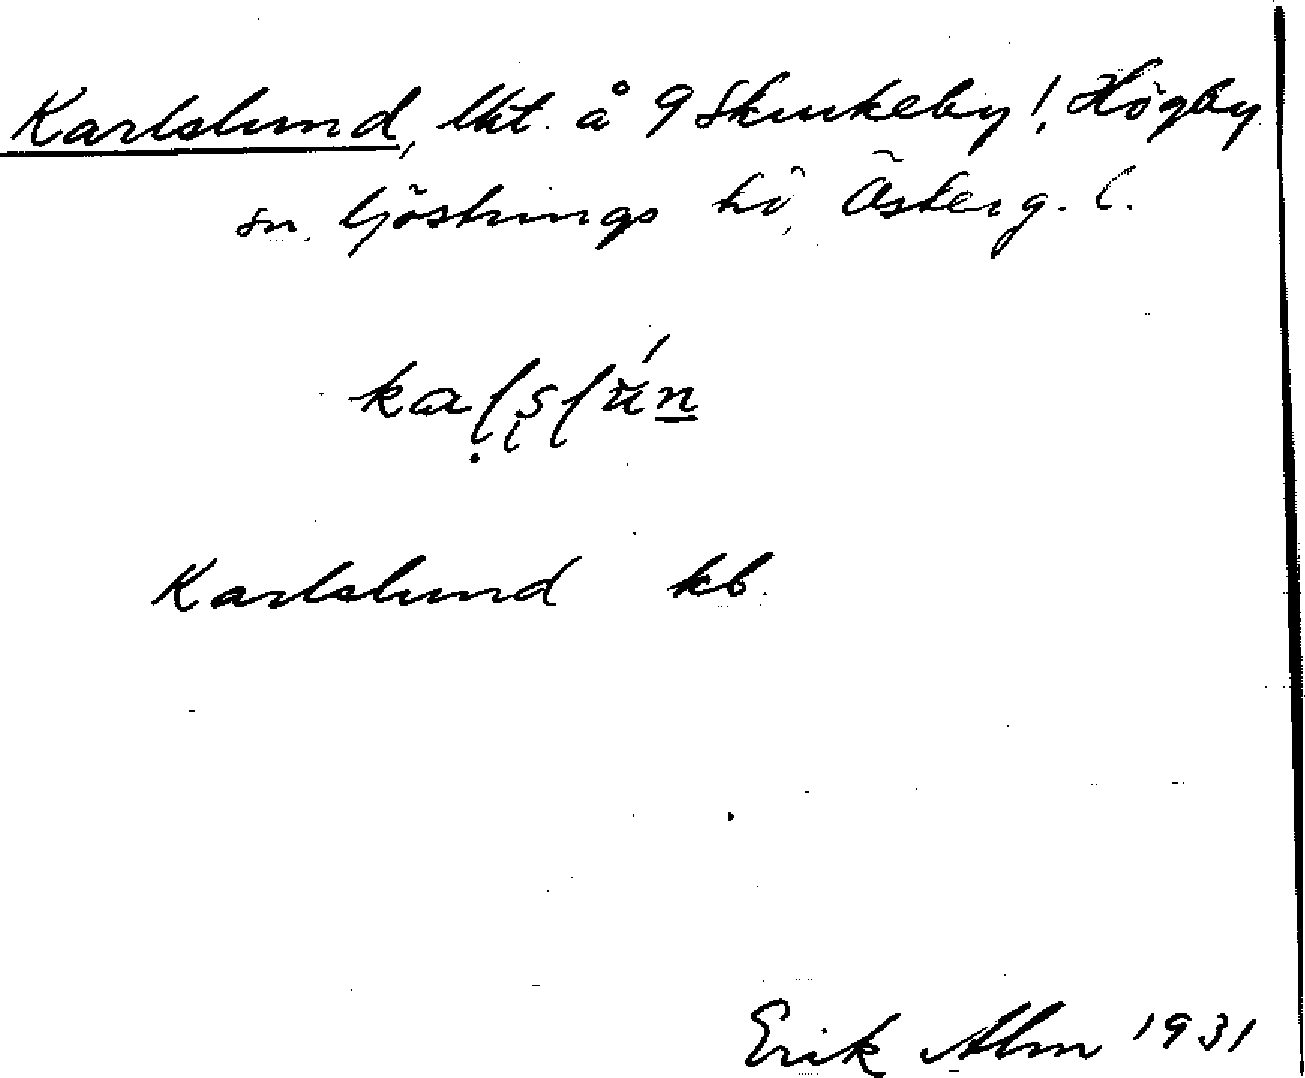 Karlslund, lht. å 9 Skrukeby!, Högby
sn. Göstrings hd, Österg. l.
kaḷṣlún
Karlslund kb.
Erik Alm 1931